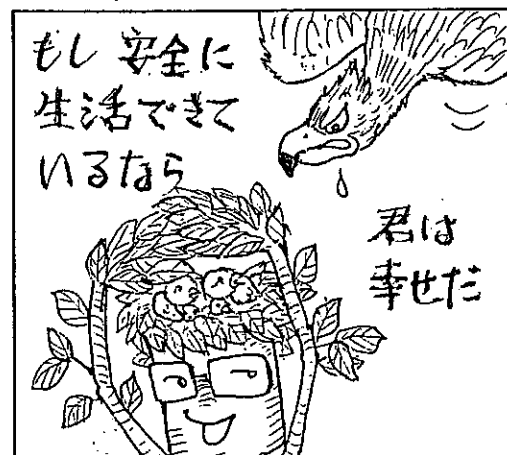 もし 安全に
生活できて
いるなら
君は
幸せだ